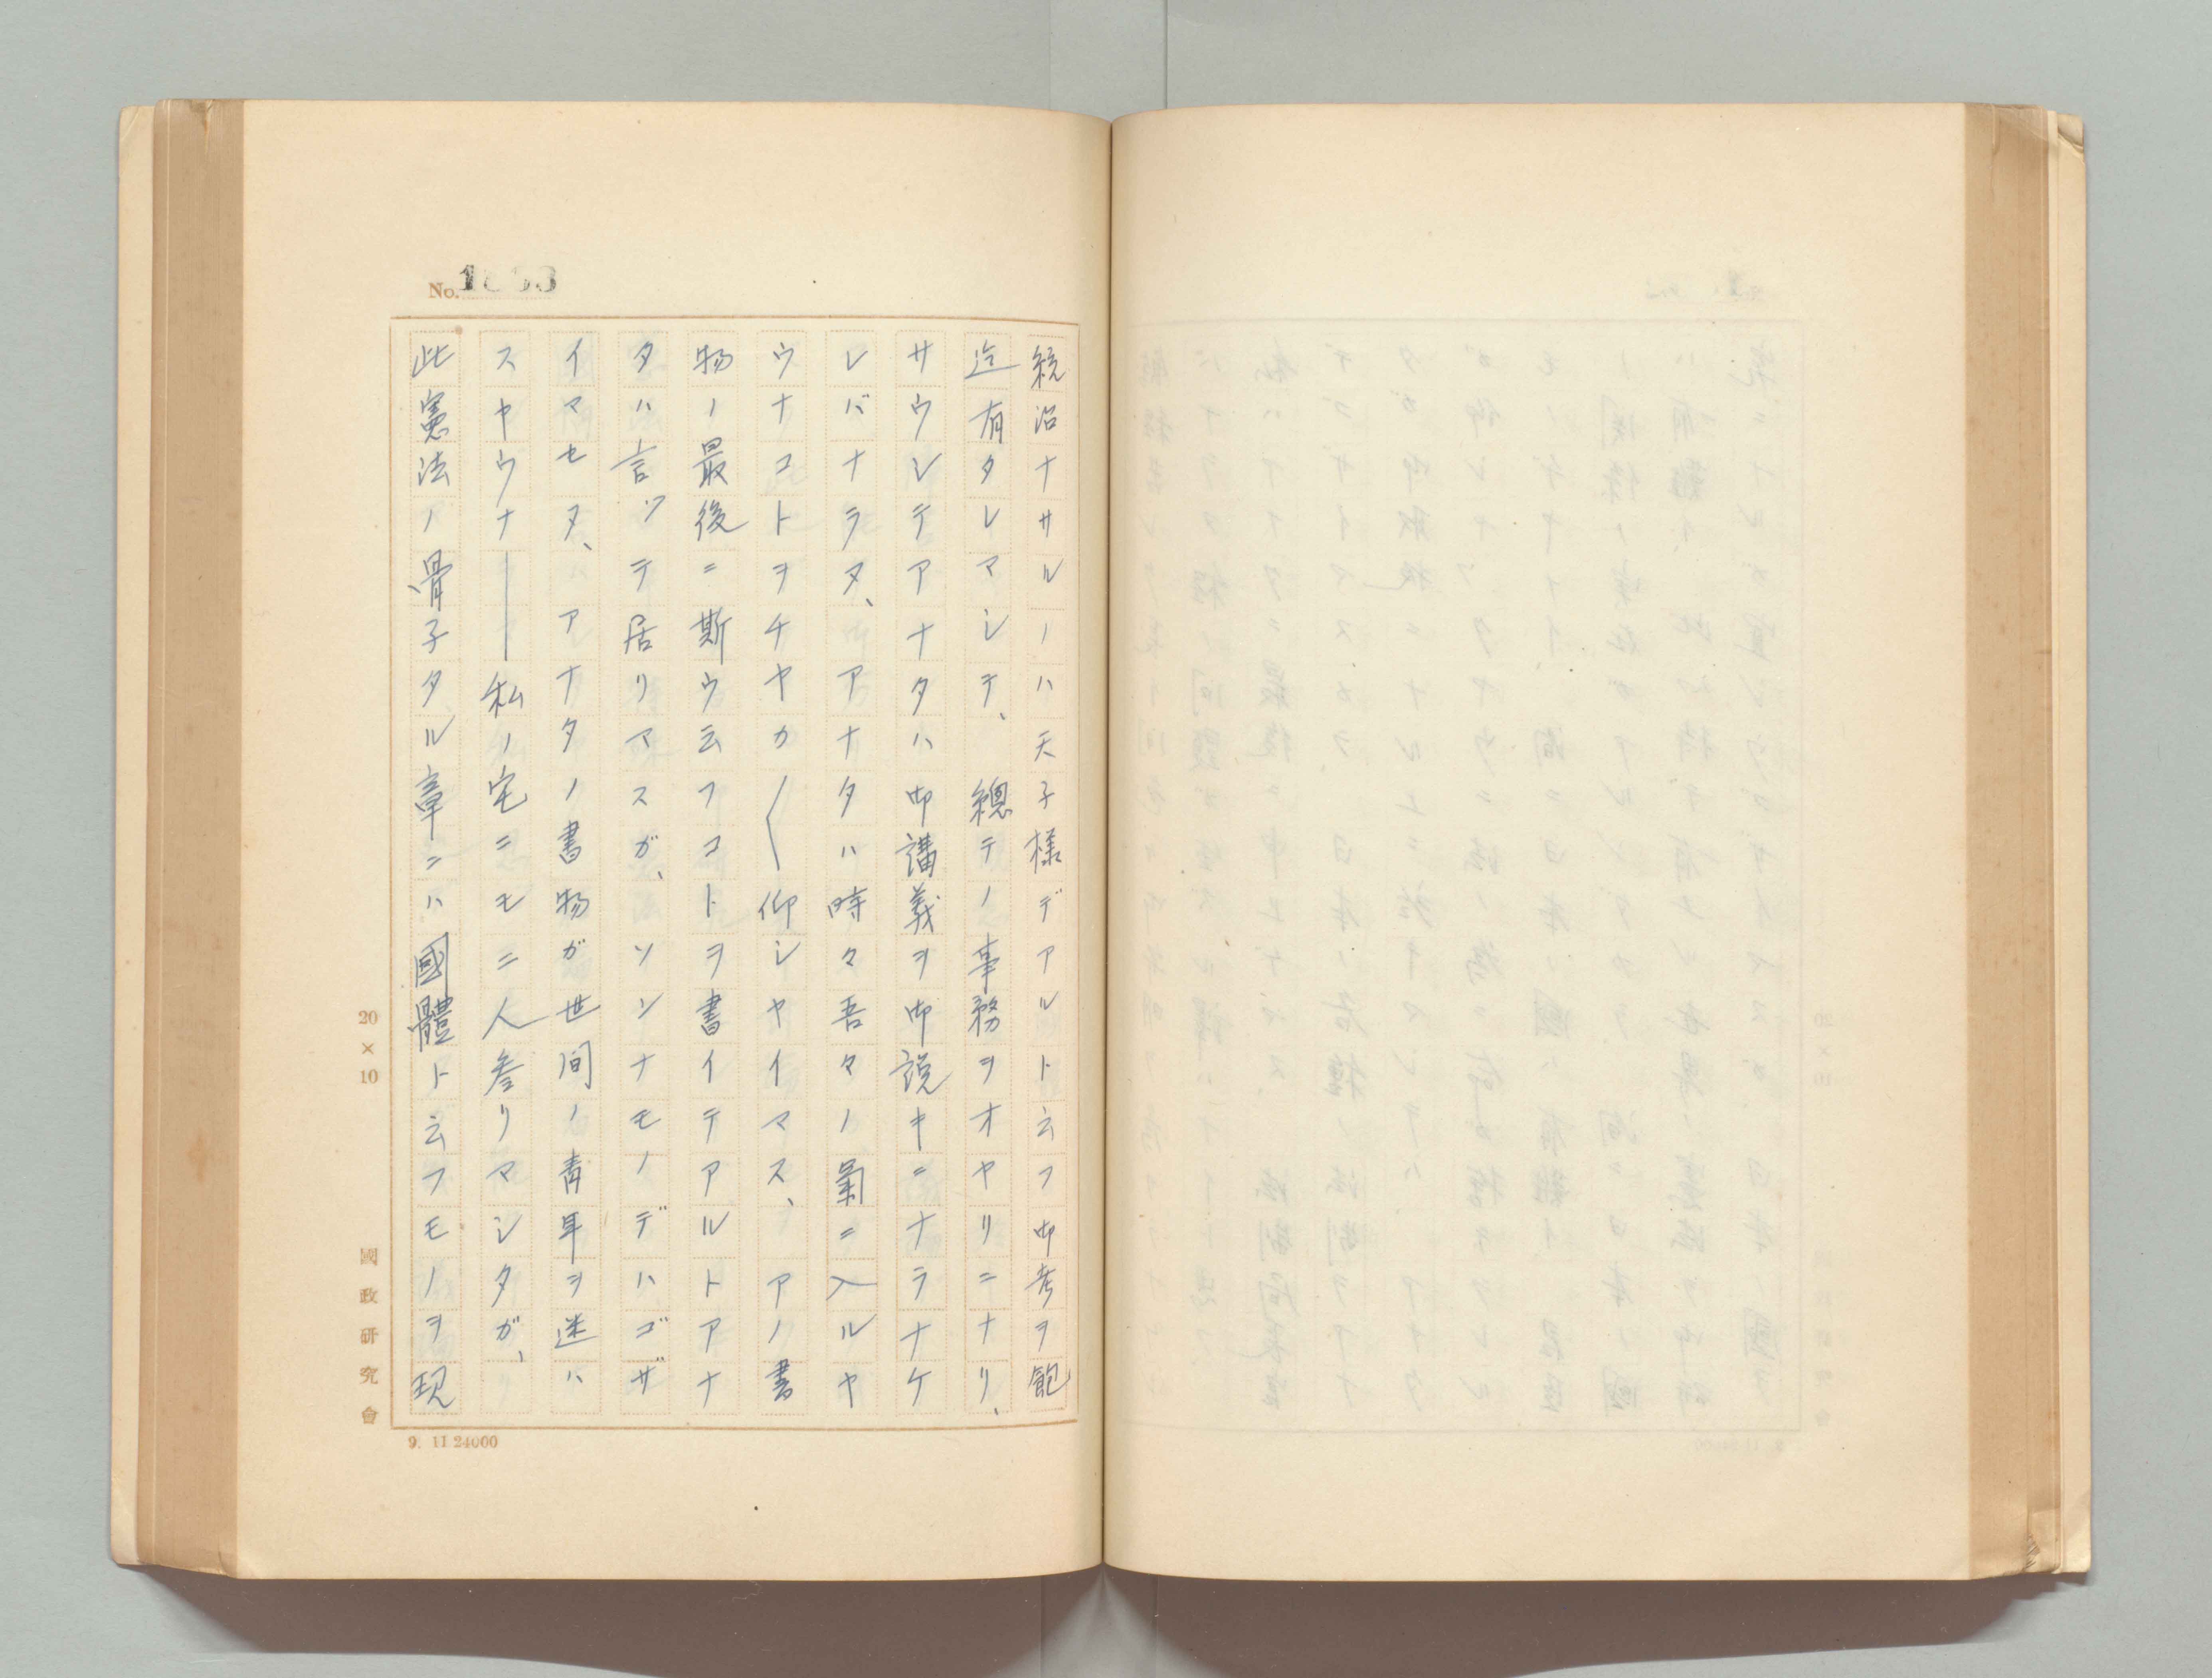 No.
統治ナサルノハ天子様デアルト云フ御考ヲ飽
迄有タレマシテ、總テノ事務ヲオヤリニナリ、
サウシテアナタハ御講義ヲ御説キニナラナケ
レバナラヌ、アナタハ時々吾々ノ氣ニ入ルヤ
ウナコトヲチヤカ〱仰シヤイマス、アノ書
物ノ最後ニ斯ウ云フコトヲ書イテアルトアナ
タハ言ツテ居リマスガ、ソンナモノデハゴザ
イマセヌ、アナタノ書物ガ世間ノ青年ヲ迷ハ
スヤウナ――私ノ宅ニモ二人参リマシタガ、
此憲法ノ骨子タル章ニハ國體ト云フモノヲ現
20×10
國政研究會
9. 11 24000